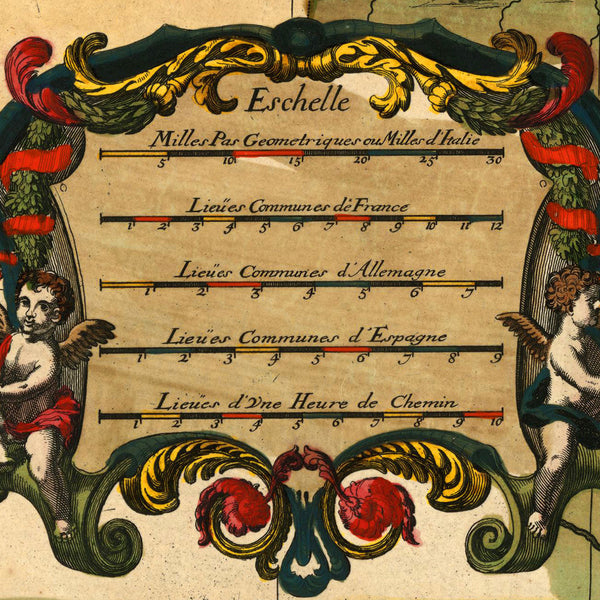 Eschelle
Milles Pas Geometriques ou Milles d'Italie
5 10 15 20 25 30
Lieües Communes de France
1 2 3 4 5 6 7 8 9 10 11 12
Lieües Communes d'Allemagne
1 2 3 4 5 6 7
Lieües Communes d'Espagne
1 2 3 4 5 6 7 8 9
Lieües d'Vne Heure de Chemin
1 2 3 4 5 6 7 8 9 10